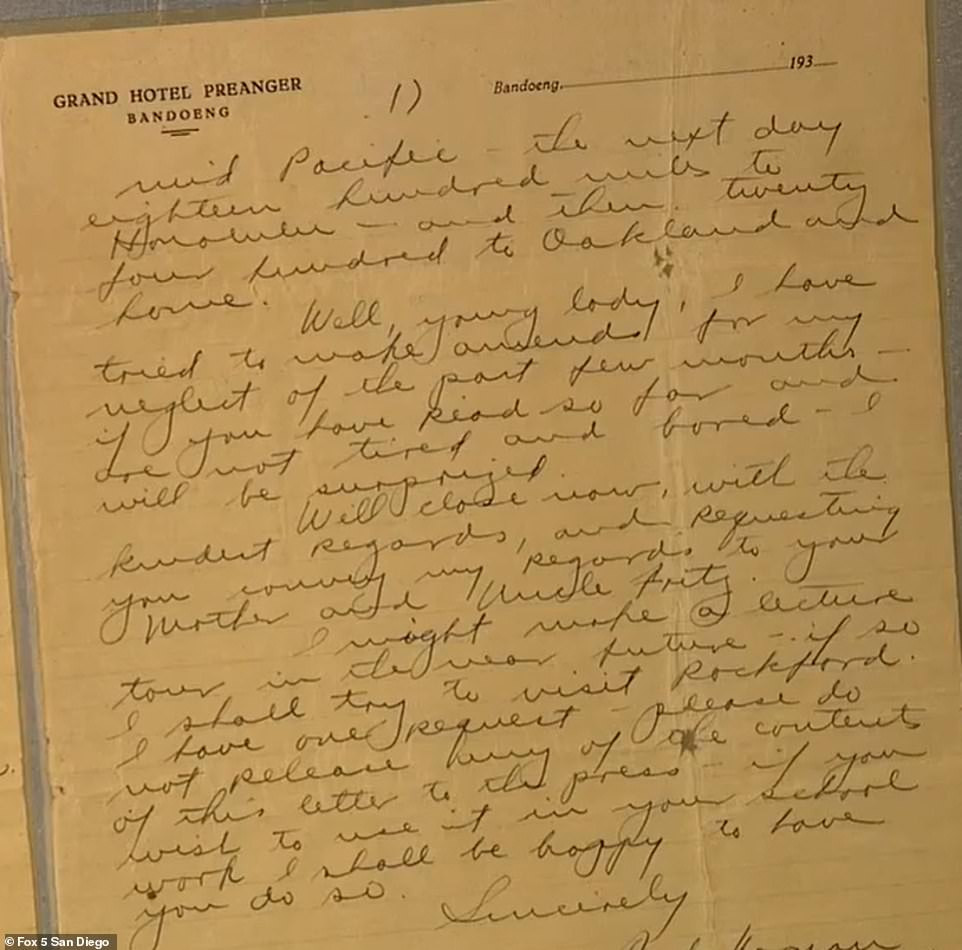 GRAND HOTEL PREANGER
BANDOENG
1)
Bandoeng, 193
mid Pacific - the next day
eighteen hundred miles to
Honolulu - and then twenty
four hundred to Oakland and
home.
Well, young lady, I have
tried to make amends for my
neglect of the past few months -
if you have read so far and
are not tired and bored - I
will be surprized.
Will close now, with the
kindest regards, and requesting
you convey my regards to your
Mother and Uncle Fritz.
I might make a lecture
tour in the near future - if so
I shall try to visit Rockford.
I have one request - please do
not release any of the contents
of this letter to the press - if you
wish to use it in your school
work I shall be happy to have
you do so.
Sincerely
© Fox 5 San Diego